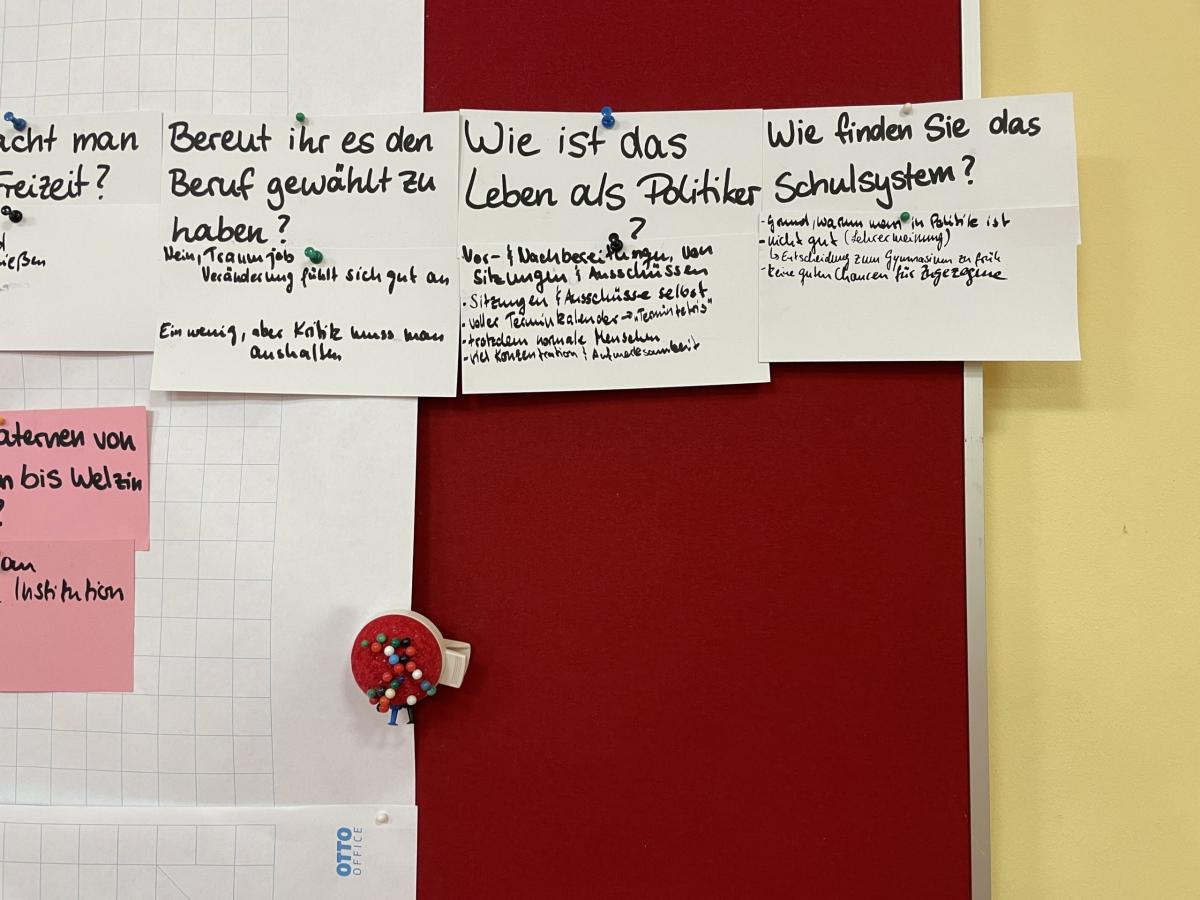 acht man
Freizeit?
ießen
Bereut ihr es den
Beruf gewählt zu
haben?
Nein, Traumjob
Veränderung fühlt sich gut an
Ein wenig, aber Kritik muss man
aushalten
Wie ist das
Leben als Politiker
?
Vor- & Nachbereitungen, von
Sitzungen & Ausschüssen
- Sitzungen & Ausschüsse selbst
- voller Terminkalender → "Termintetris"
- trotzdem normale Menschen
- viel Konzentration & Aufmerksamkeit
Wie finden Sie das
Schulsystem?
- Grund, warum man in Politik ist
- nicht gut (Lehrermeinung)
↳ Entscheidung zum Gymnasium zu früh
- keine guten Chancen für Zugezogene
aternen von
n bis Welzin
?
an
Institution
OTTO
OFFICE